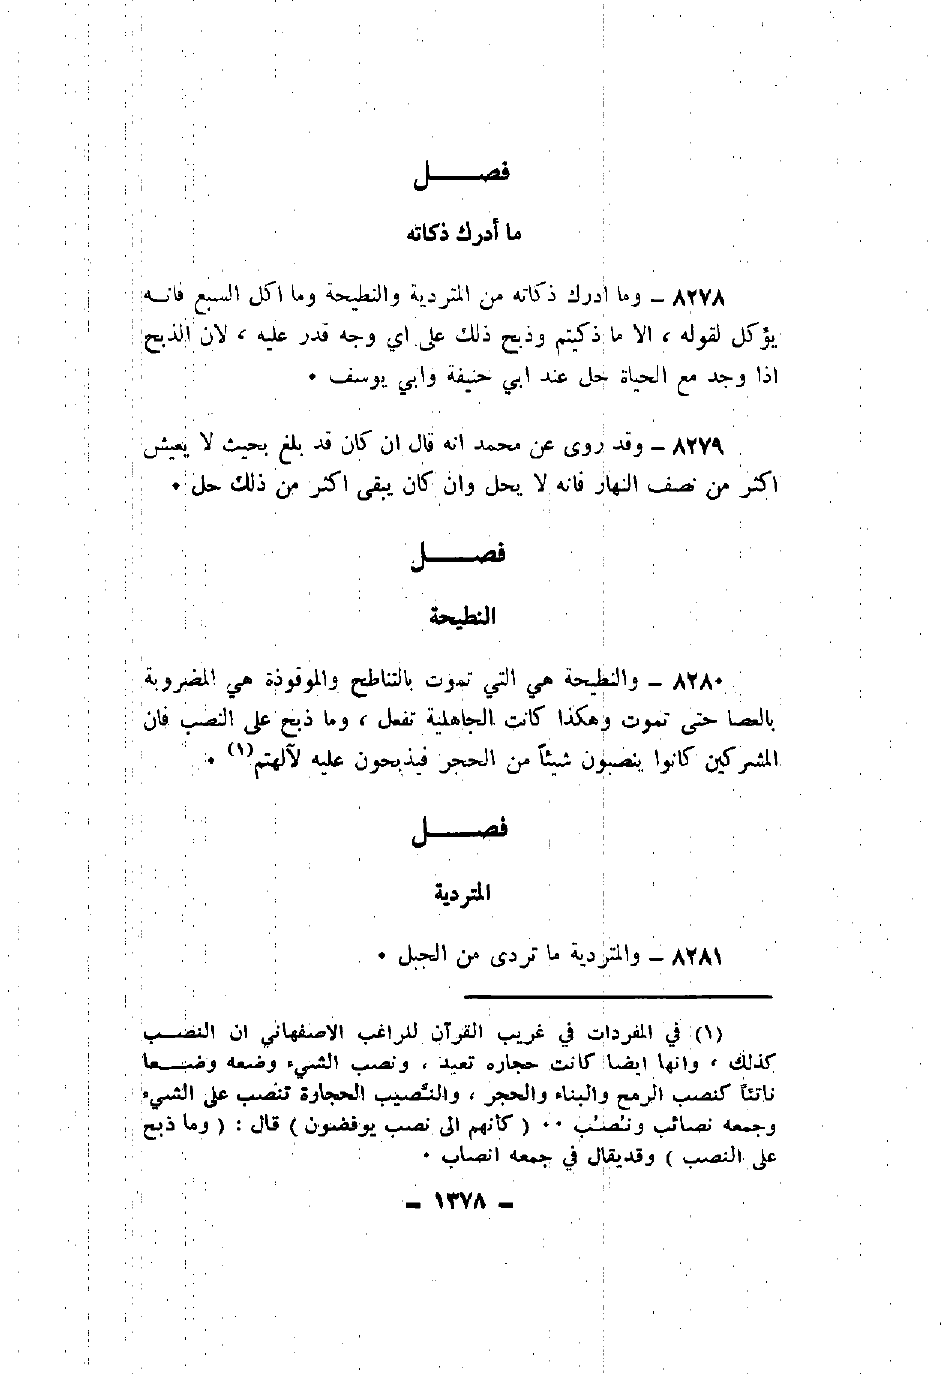 فصـــــل
ما أدرك ذكاته
٨٢٧٨ ــ وما أدرك ذكاته من المتردية والنطيحة وما اكل السبع فانــه
يؤكل لقوله ، الا ما ذكيتم وذبح ذلك على اي وجه قدر عليه ، لان الذبح
اذا وجد مع الحياة حل عند ابي حنيفة وابي يوسف ٠
٨٢٧٩ ــ وقد روى عن محمد انه قال ان كان قد بلغ بحيث لا يعيش
اكثر من نصف النهار فانه لا يحل وان كان يبقى اكثر من ذلك حل ٠
فصـــــل
النطيحة
٨٢٨٠ ــ والنطيحة هي التي تموت بالتناطح والموقوذة هي المضروبة
بالعصا حتى تموت وهكذا كانت الجاهلية تفعل ، وما ذبح على النصب فان
المشركين كانوا ينصبون شيئاً من الحجر فيذبحون عليه لآلهتم(١) ٠
فصـــــل
المتردية
٨٢٨١ ــ والمتردية ما تردى من الجبل ٠
(١) في المفردات في غريب القرآن للراغب الاصفهاني ان النصــب
كذلك ، وانها ايضا كانت حجاره تعبد ، ونصب الشيء وضعه وضــعا
ناتئاً كنصب الرمح والبناء والحجر ، والنَّصيب الحجارة تنصب على الشيء
وجمعه نصائب ونُصُب ٠٠ ( كانهم الى نصب يوفضون ) قال : ( وما ذبح
على النصب ) وقديقال في جمعه انصاب ٠
ــ ١٣٧٨ ــ